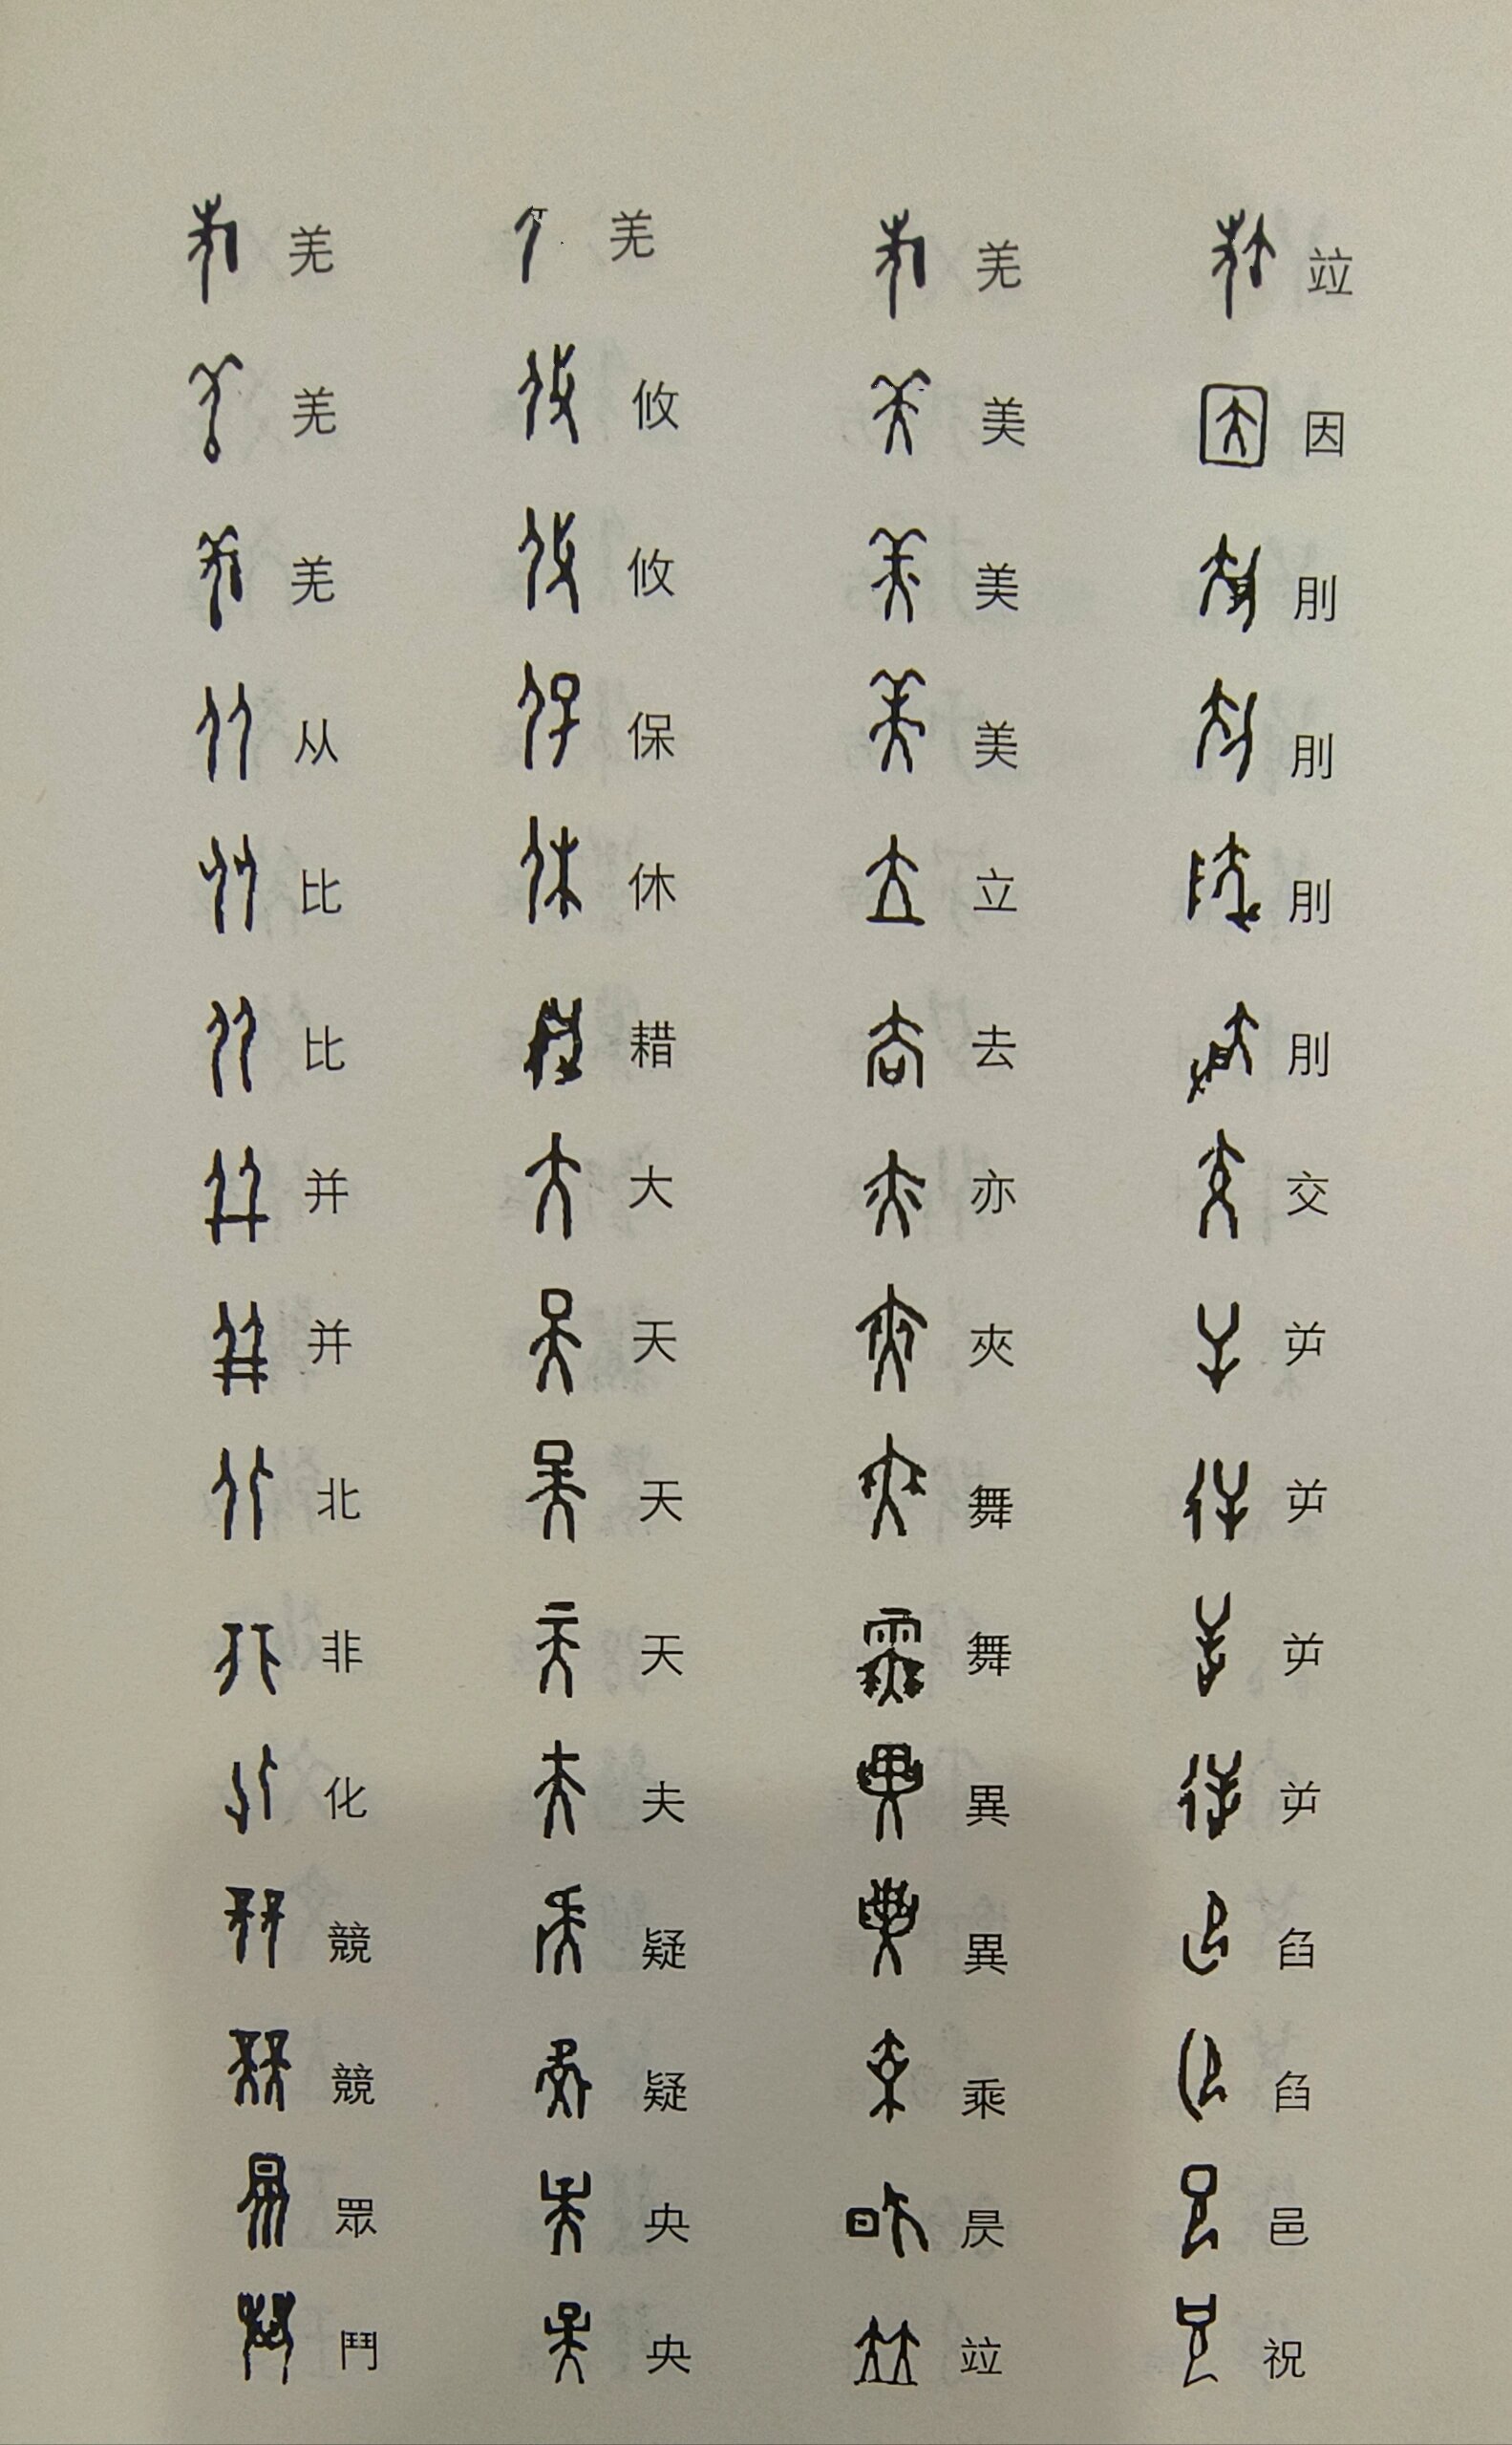 羌 羌 羌 竝
羌 攸 美 因
羌 攸 美 刖
从 保 美 刖
比 休 立 刖
比 耤 去 刖
并 大 亦 交
并 天 夾 屰
北 天 舞 屰
非 天 舞 屰
化 夫 異 屰
競 疑 異 臽
競 疑 乘 臽
眾 央 昃 邑
鬥 央 竝 祝